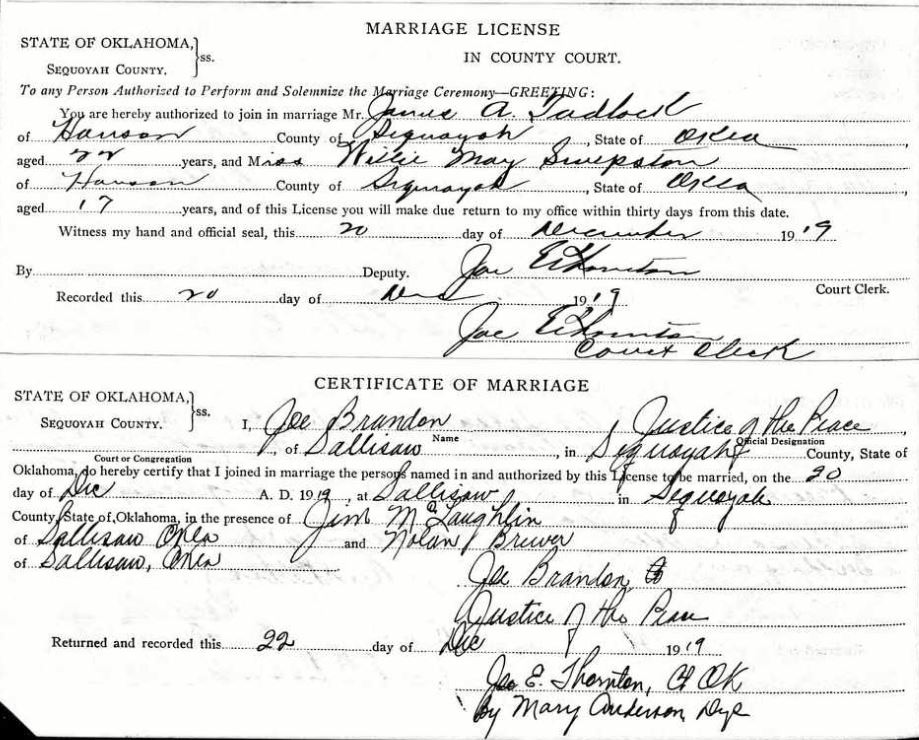 MARRIAGE LICENSE
STATE OF OKLAHOMA, } ss. IN COUNTY COURT.
SEQUOYAH COUNTY.
To any Person Authorized to Perform and Solemnize the Marriage Ceremony—GREETING:
You are hereby authorized to join in marriage Mr. James A. Tadlock
of Hanson County of Sequoyah, State of Okla,
aged 22 years, and Miss Willie May Swepston
of Hanson County of Sequoyah, State of Okla,
aged 17 years, and of this License you will make due return to my office within thirty days from this date.
Witness my hand and official seal, this 20 day of December 1919
By Deputy. Joe E Thornton Court Clerk.
Recorded this 20 day of Dec 1919
Joe E Thornton
Court Clerk
CERTIFICATE OF MARRIAGE
STATE OF OKLAHOMA, } ss.
SEQUOYAH COUNTY. I, Joe Brandon, Justice of the Peace,
Name Official Designation
, of Sallisaw, in Sequoyah County, State of
Court or Congregation
Oklahoma, do hereby certify that I joined in marriage the persons named in and authorized by this License to be married, on the 20
day of Dec A. D. 1919, at Sallisaw in Sequoyah
County, State of, Oklahoma, in the presence of Jim McLaughlin
of Sallisaw Okla and Nolan Brewer
of Sallisaw, Okla
Joe Brandon,
Justice of the Peace
Returned and recorded this 22 day of Dec 1919
Joe E. Thornton, Ct Clk
By Mary Anderson, Dpt